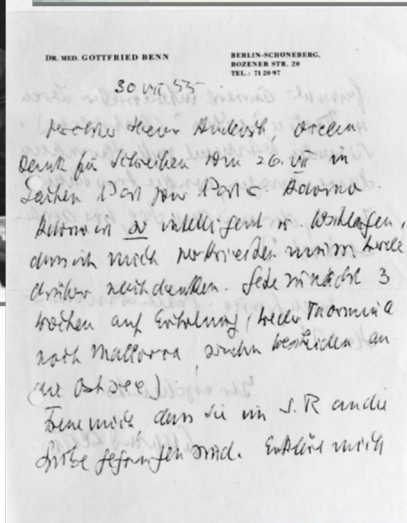 DR. MED. GOTTFRIED BENN
BERLIN-SCHÖNEBERG,
BOZENER STR. 20
TEL.: 71 20 97
30 VII 55
Herr Andersch,
Dank für Schreiben vom 26. VII in
Sachen Adorno.
Adorno ist zu intelligent u.
dass ich mich muss, werde
drüber nachdenken. Gehe zunächst 3
Wochen auf Erholung (weder Thormina
noch Mallorca, sondern bescheiden an
die Ostsee)
Freue mich, dass Sie im S.R an die
gegangen sind. mich